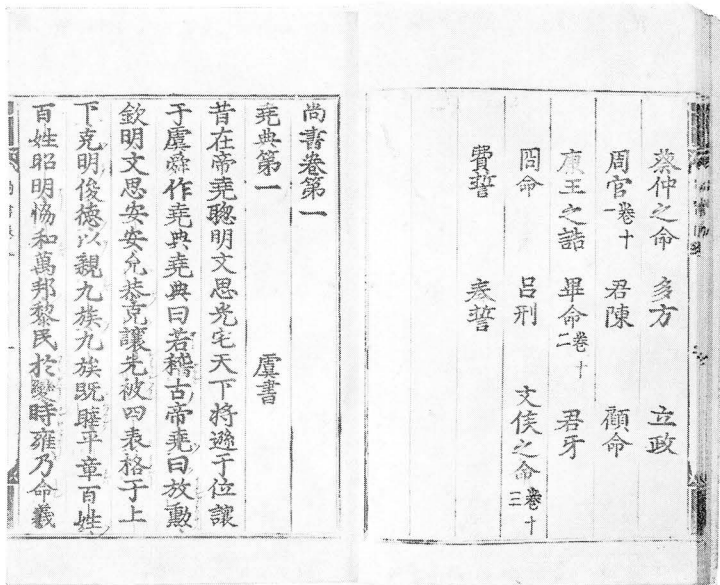 蔡仲之命 多方 立政
周官卷十一 君陳 顧命
康王之誥 畢命卷十二 君牙
冏命 呂刑 文侯之命卷十三
費誓 秦誓
尚書卷第一
堯典第一 虞書
昔在帝堯聦明文思光宅天下将遜于位讓
于虞舜作堯典堯典曰若稽古帝堯曰放勲
欽明文思安安允恭克讓光被四表格于上
下克明俊德以親九族九族既睦平章百姓
百姓昭明恊和萬邦黎民於變時雍乃命羲